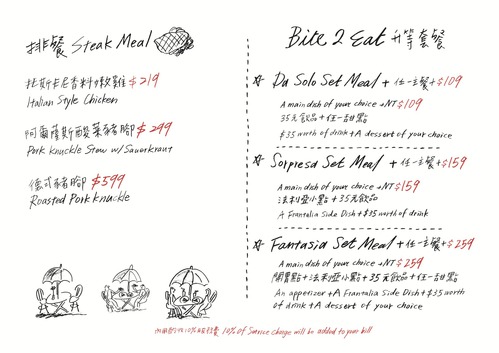 排餐 Steak Meal
托斯卡尼香料嫩雞 $219
Italian Style Chicken
阿爾薩斯酸菜豬腳 $299
Pork Knuckle Stew w/Sauerkraut
德式豬腳 $599
Roasted Pork Knuckle
Bite 2 Eat 升等套餐
Du Solo Set Meal + 任一主餐+$109
A main dish of your choice +NT$109
35元飲品+任一甜點
$35 worth of drink + A dessert of your choice
Sorpresa Set Meal + 任一主餐+$159
A main dish of your choice +NT$159
法利亞小點+35元飲品
A Frantalia Side Dish+$35 worth of drink
Fantasia Set Meal + 任一主餐+$259
A main dish of your choice +NT$259
開胃點+法利亞小點+35元飲品+任一甜點
An appetizer +A Frantalia Side Dish+$35 worth
of drink +A dessert of your choice
內用酌收10%服務費 10% of Service Charge will be added to your bill